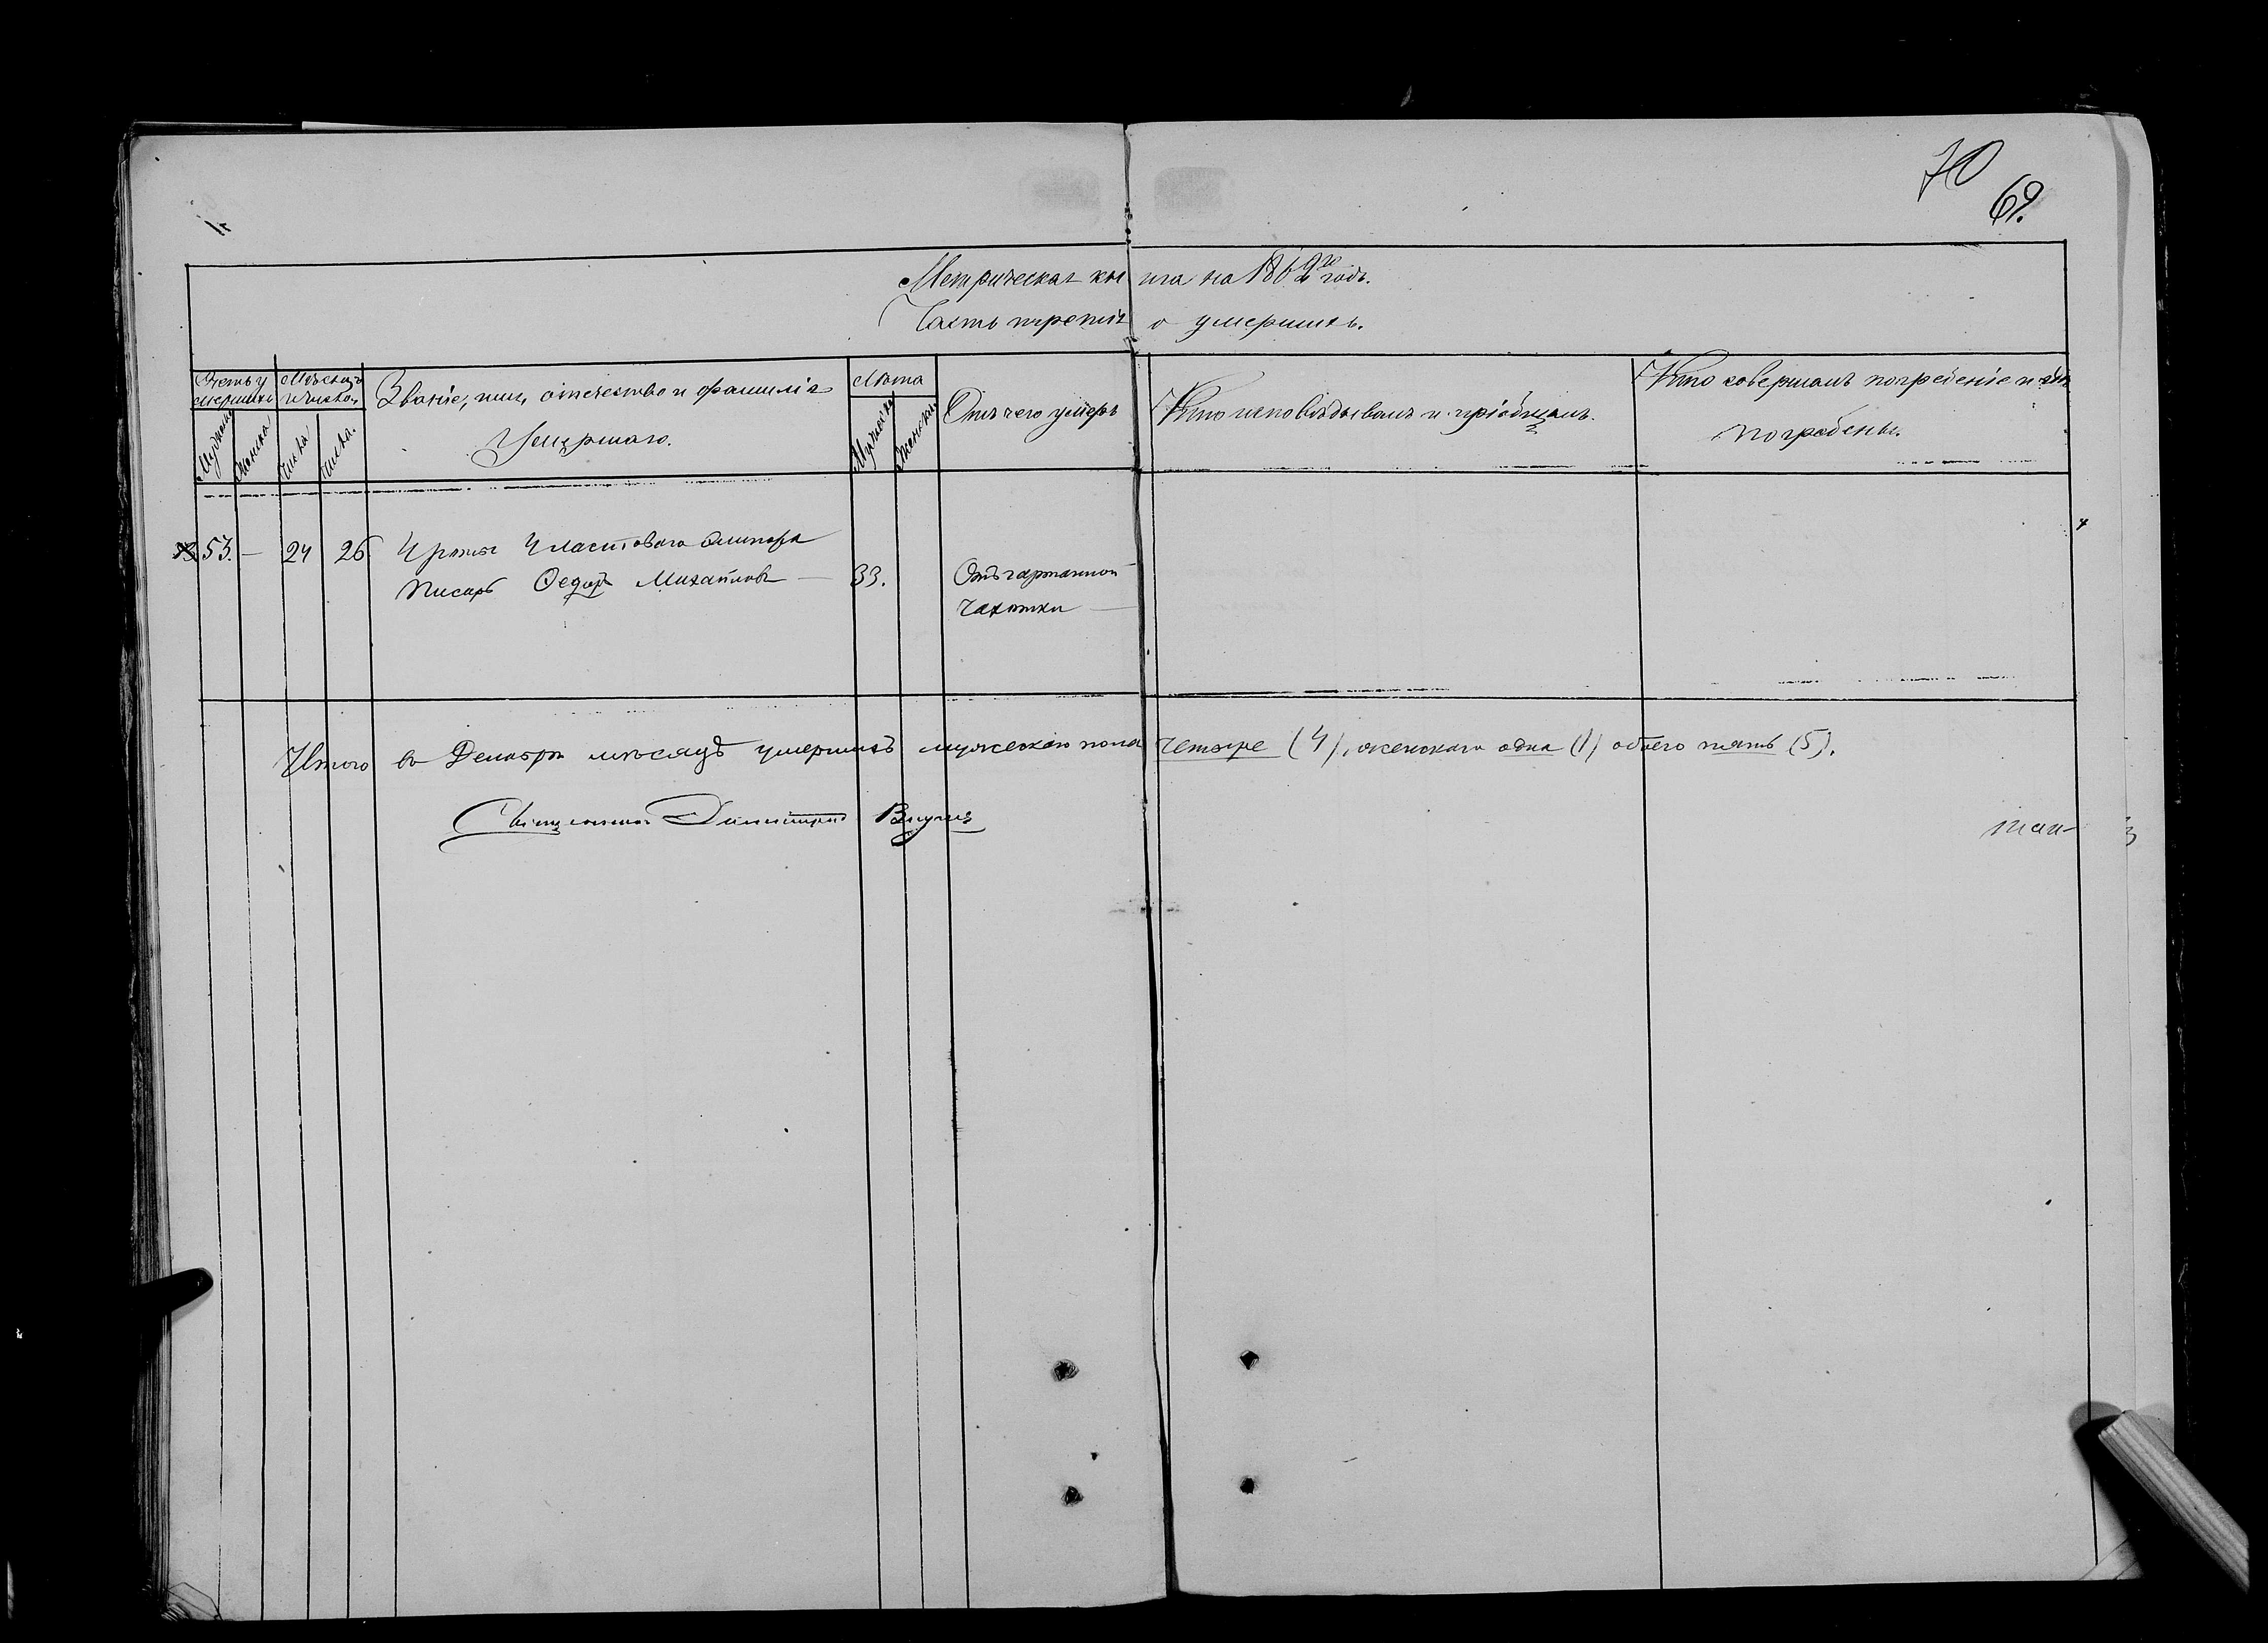 70
69.
Метрическая книга на 1869го годъ.
Часть третья о умершихъ.
Счетъ умершихъ
Мѣсяцъ и число.
Званіе, имя, отечество и фамилія умершаго.
Лѣта
Отъ чего умеръ
Кто исповѣдывалъ и пріобщалъ.
Кто совершалъ погребеніе и гдѣ погребены.
Мужеска
Женска
Числа
Числа.
Мужеска
Женска
53. — 24 26
Участковаго
Писарь Ѳедоръ Михайловъ — 33.
Отъ гортанной
чахотки —
Итого въ Декабрѣ мѣсяцѣ умершихъ мужескаго пола четыре (4), женскаго одна (1) обоего пять (5).
Священникъ Димитрій